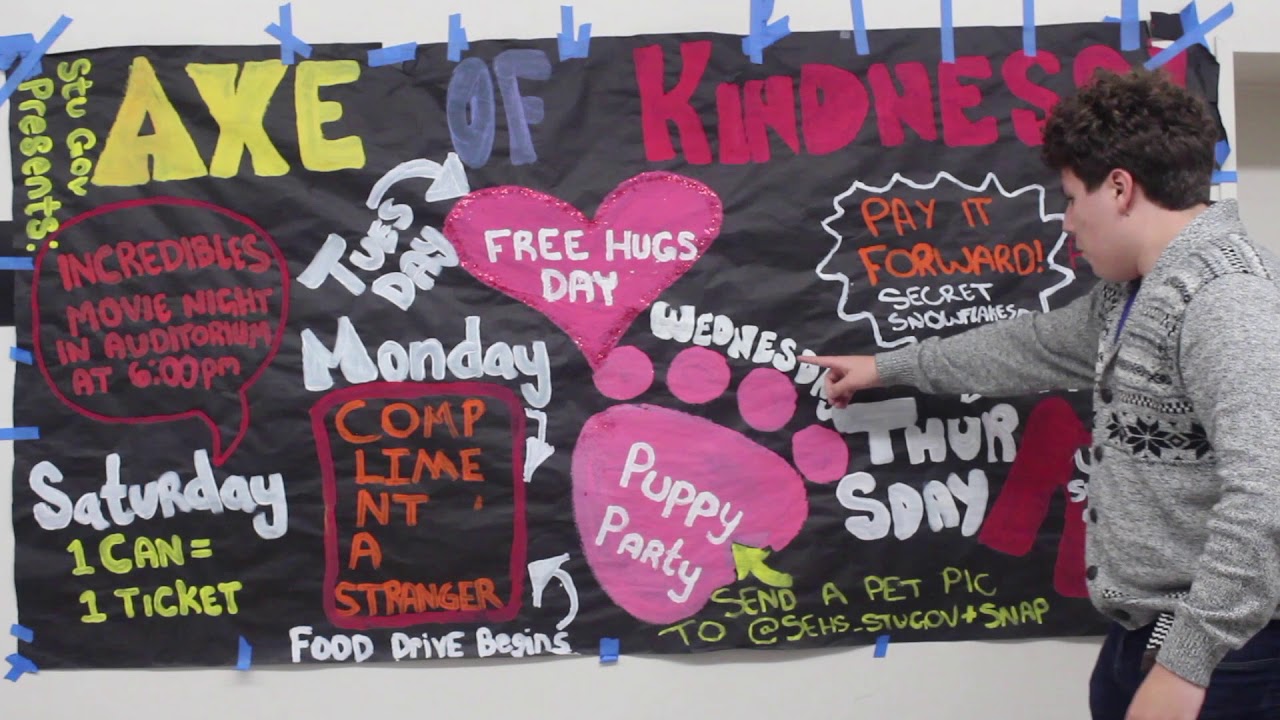 Stu Gov
Presents:
AXE OF KINDNESS
INCREDIBLES
MOVIE NIGHT
IN AUDITORIUM
AT 6:00pm
Saturday
1 CAN =
1 TICKET
Monday
COMP
LIME
NT
A
STRANGER
FOOD DRIVE BEGINS
TUES
DAY
FREE HUGS
DAY
WEDNESDAY
PUPPY
PARTY
SEND A PET PIC
TO @SEHS_STUGOV+SNAP
PAY IT
FORWARD!
SECRET
SNOWFLAKES
THUR
SDAY